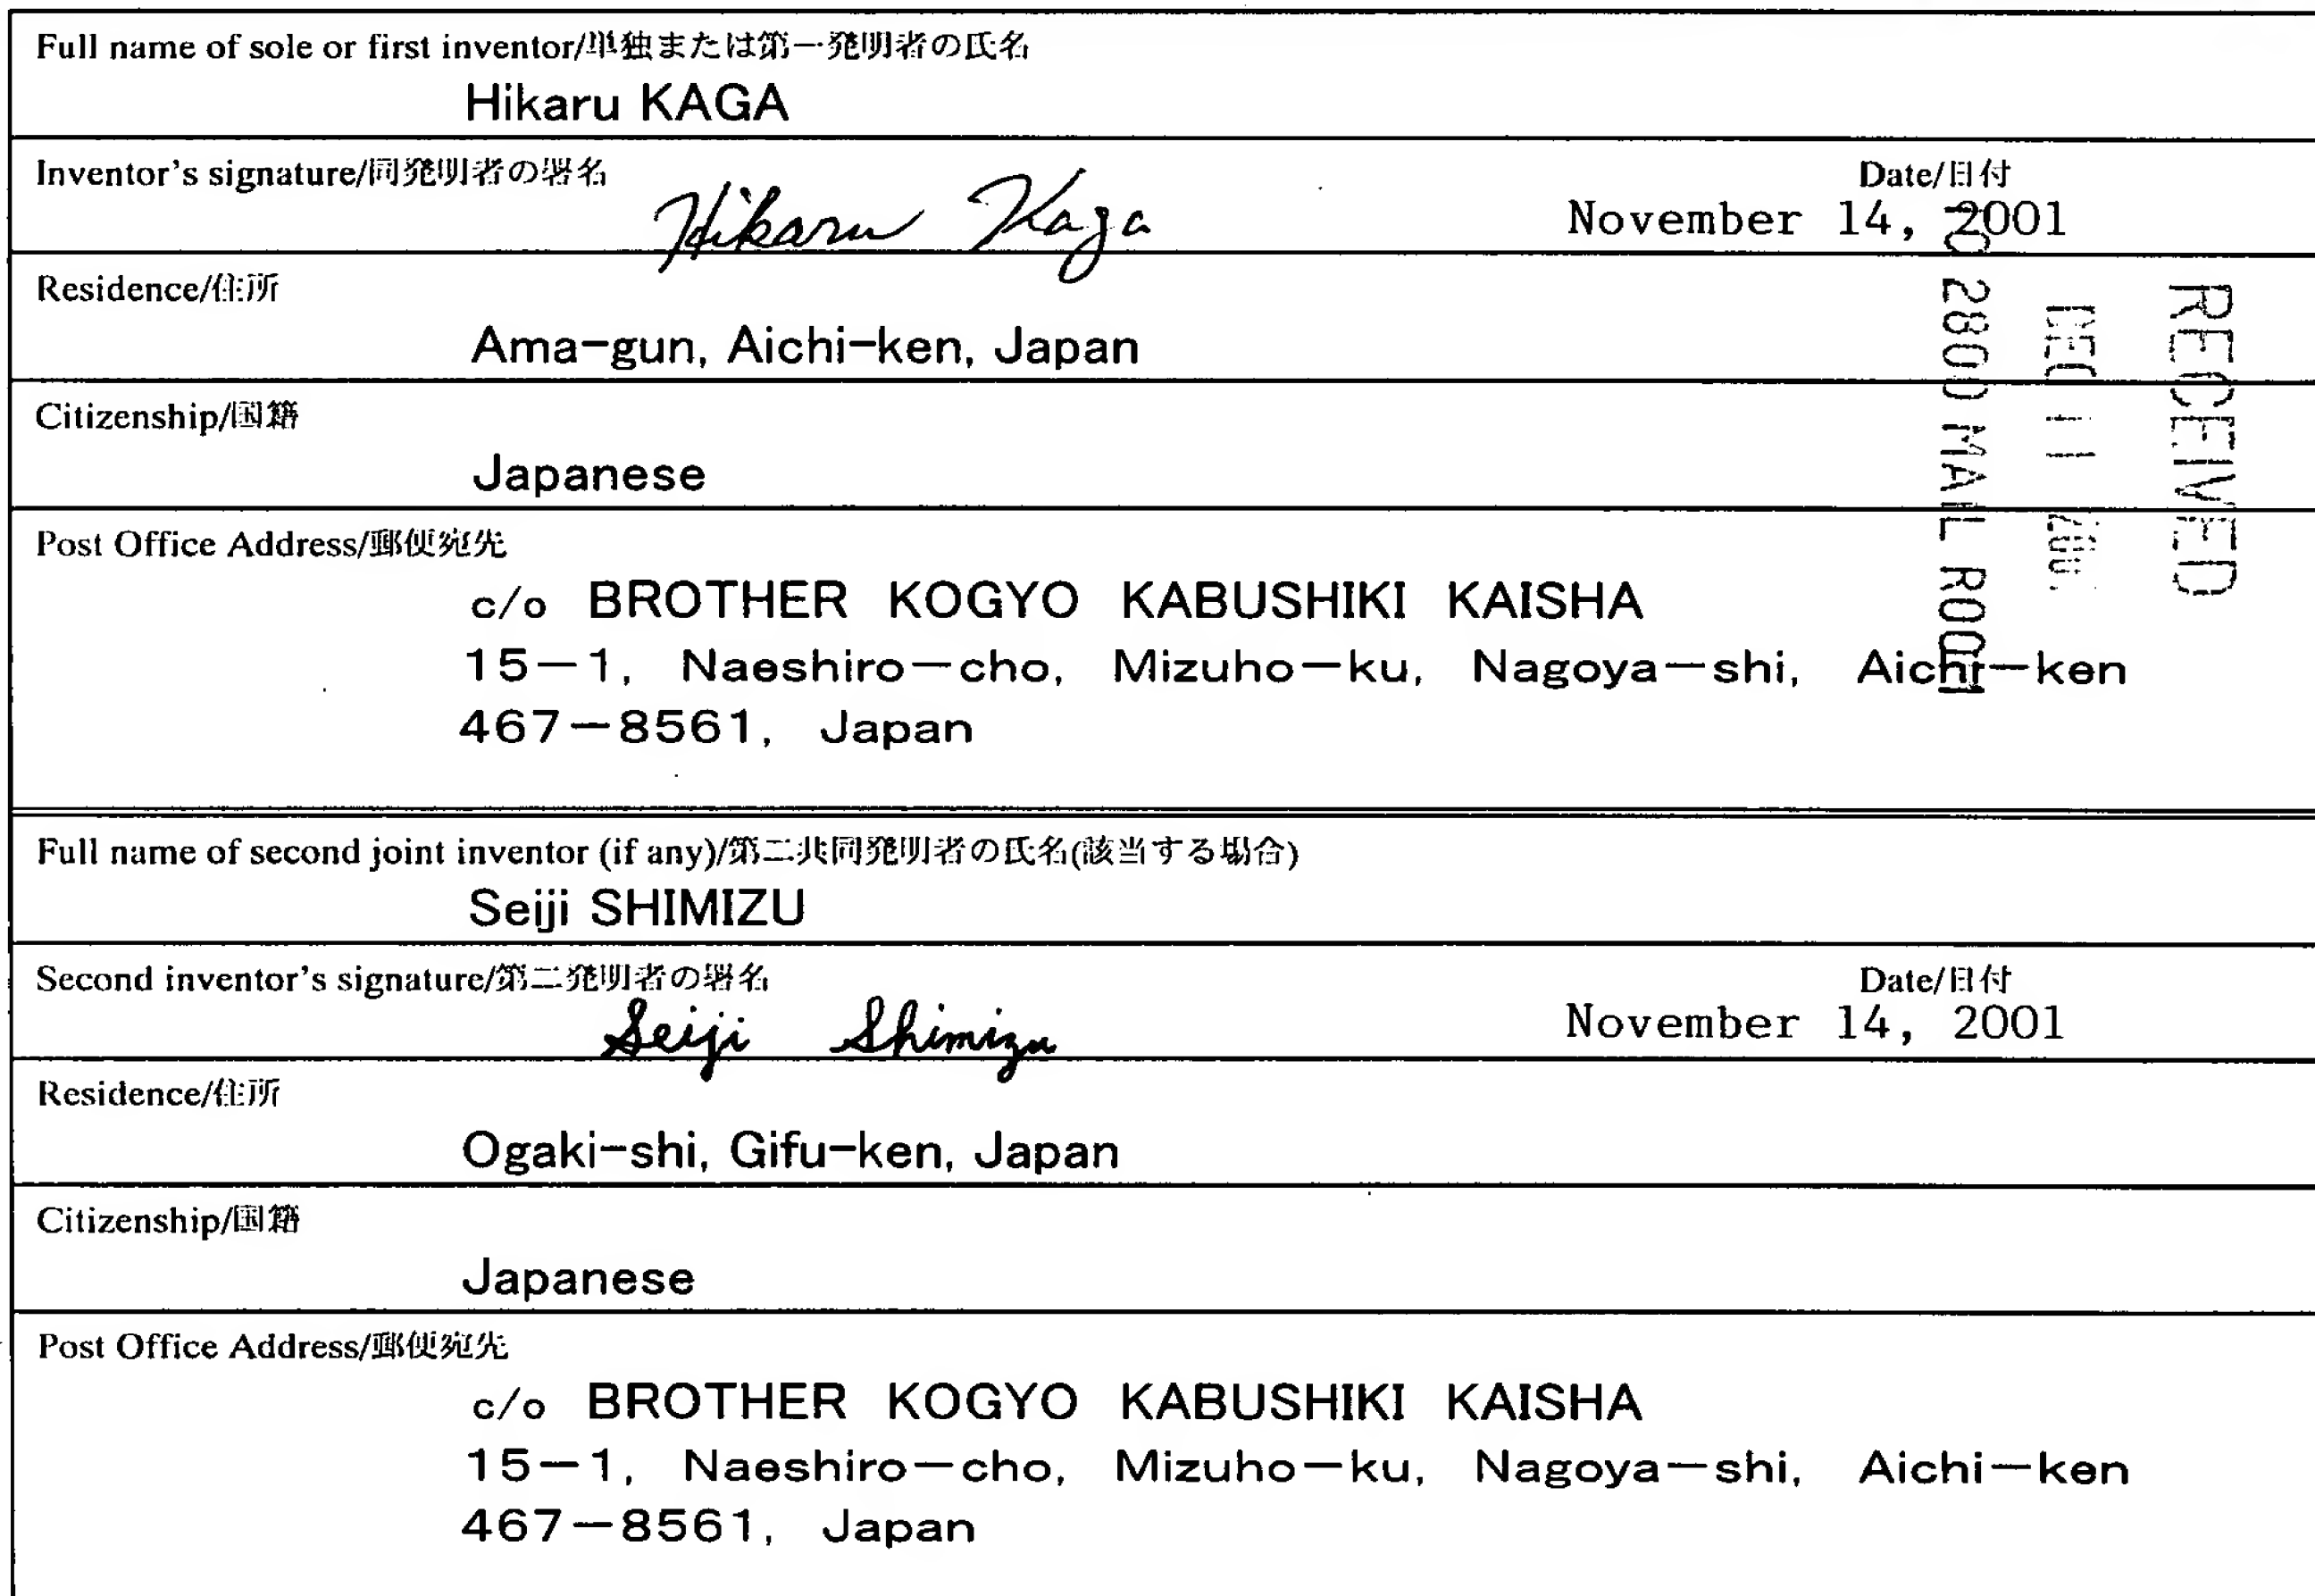 Full name of sole or first inventor/単独または第一発明者の氏名
Hikaru KAGA
Inventor's signature/同発明者の署名
Date/日付
Hikaru Kaga
November 14, 2001
Residence/住所
Ama-gun, Aichi-ken, Japan
Citizenship/国籍
Japanese
Post Office Address/郵便宛先
c/o BROTHER KOGYO KABUSHIKI KAISHA
15-1, Naeshiro-cho, Mizuho-ku, Nagoya-shi, Aichi-ken
467-8561, Japan
RECEIVED
DEC 11
2800 MAIL ROOM
Full name of second joint inventor (if any)/第二共同発明者の氏名(該当する場合)
Seiji SHIMIZU
Second inventor's signature/第二発明者の署名
Date/日付
Seiji Shimizu
November 14, 2001
Residence/住所
Ogaki-shi, Gifu-ken, Japan
Citizenship/国籍
Japanese
Post Office Address/郵便宛先
c/o BROTHER KOGYO KABUSHIKI KAISHA
15-1, Naeshiro-cho, Mizuho-ku, Nagoya-shi, Aichi-ken
467-8561, Japan